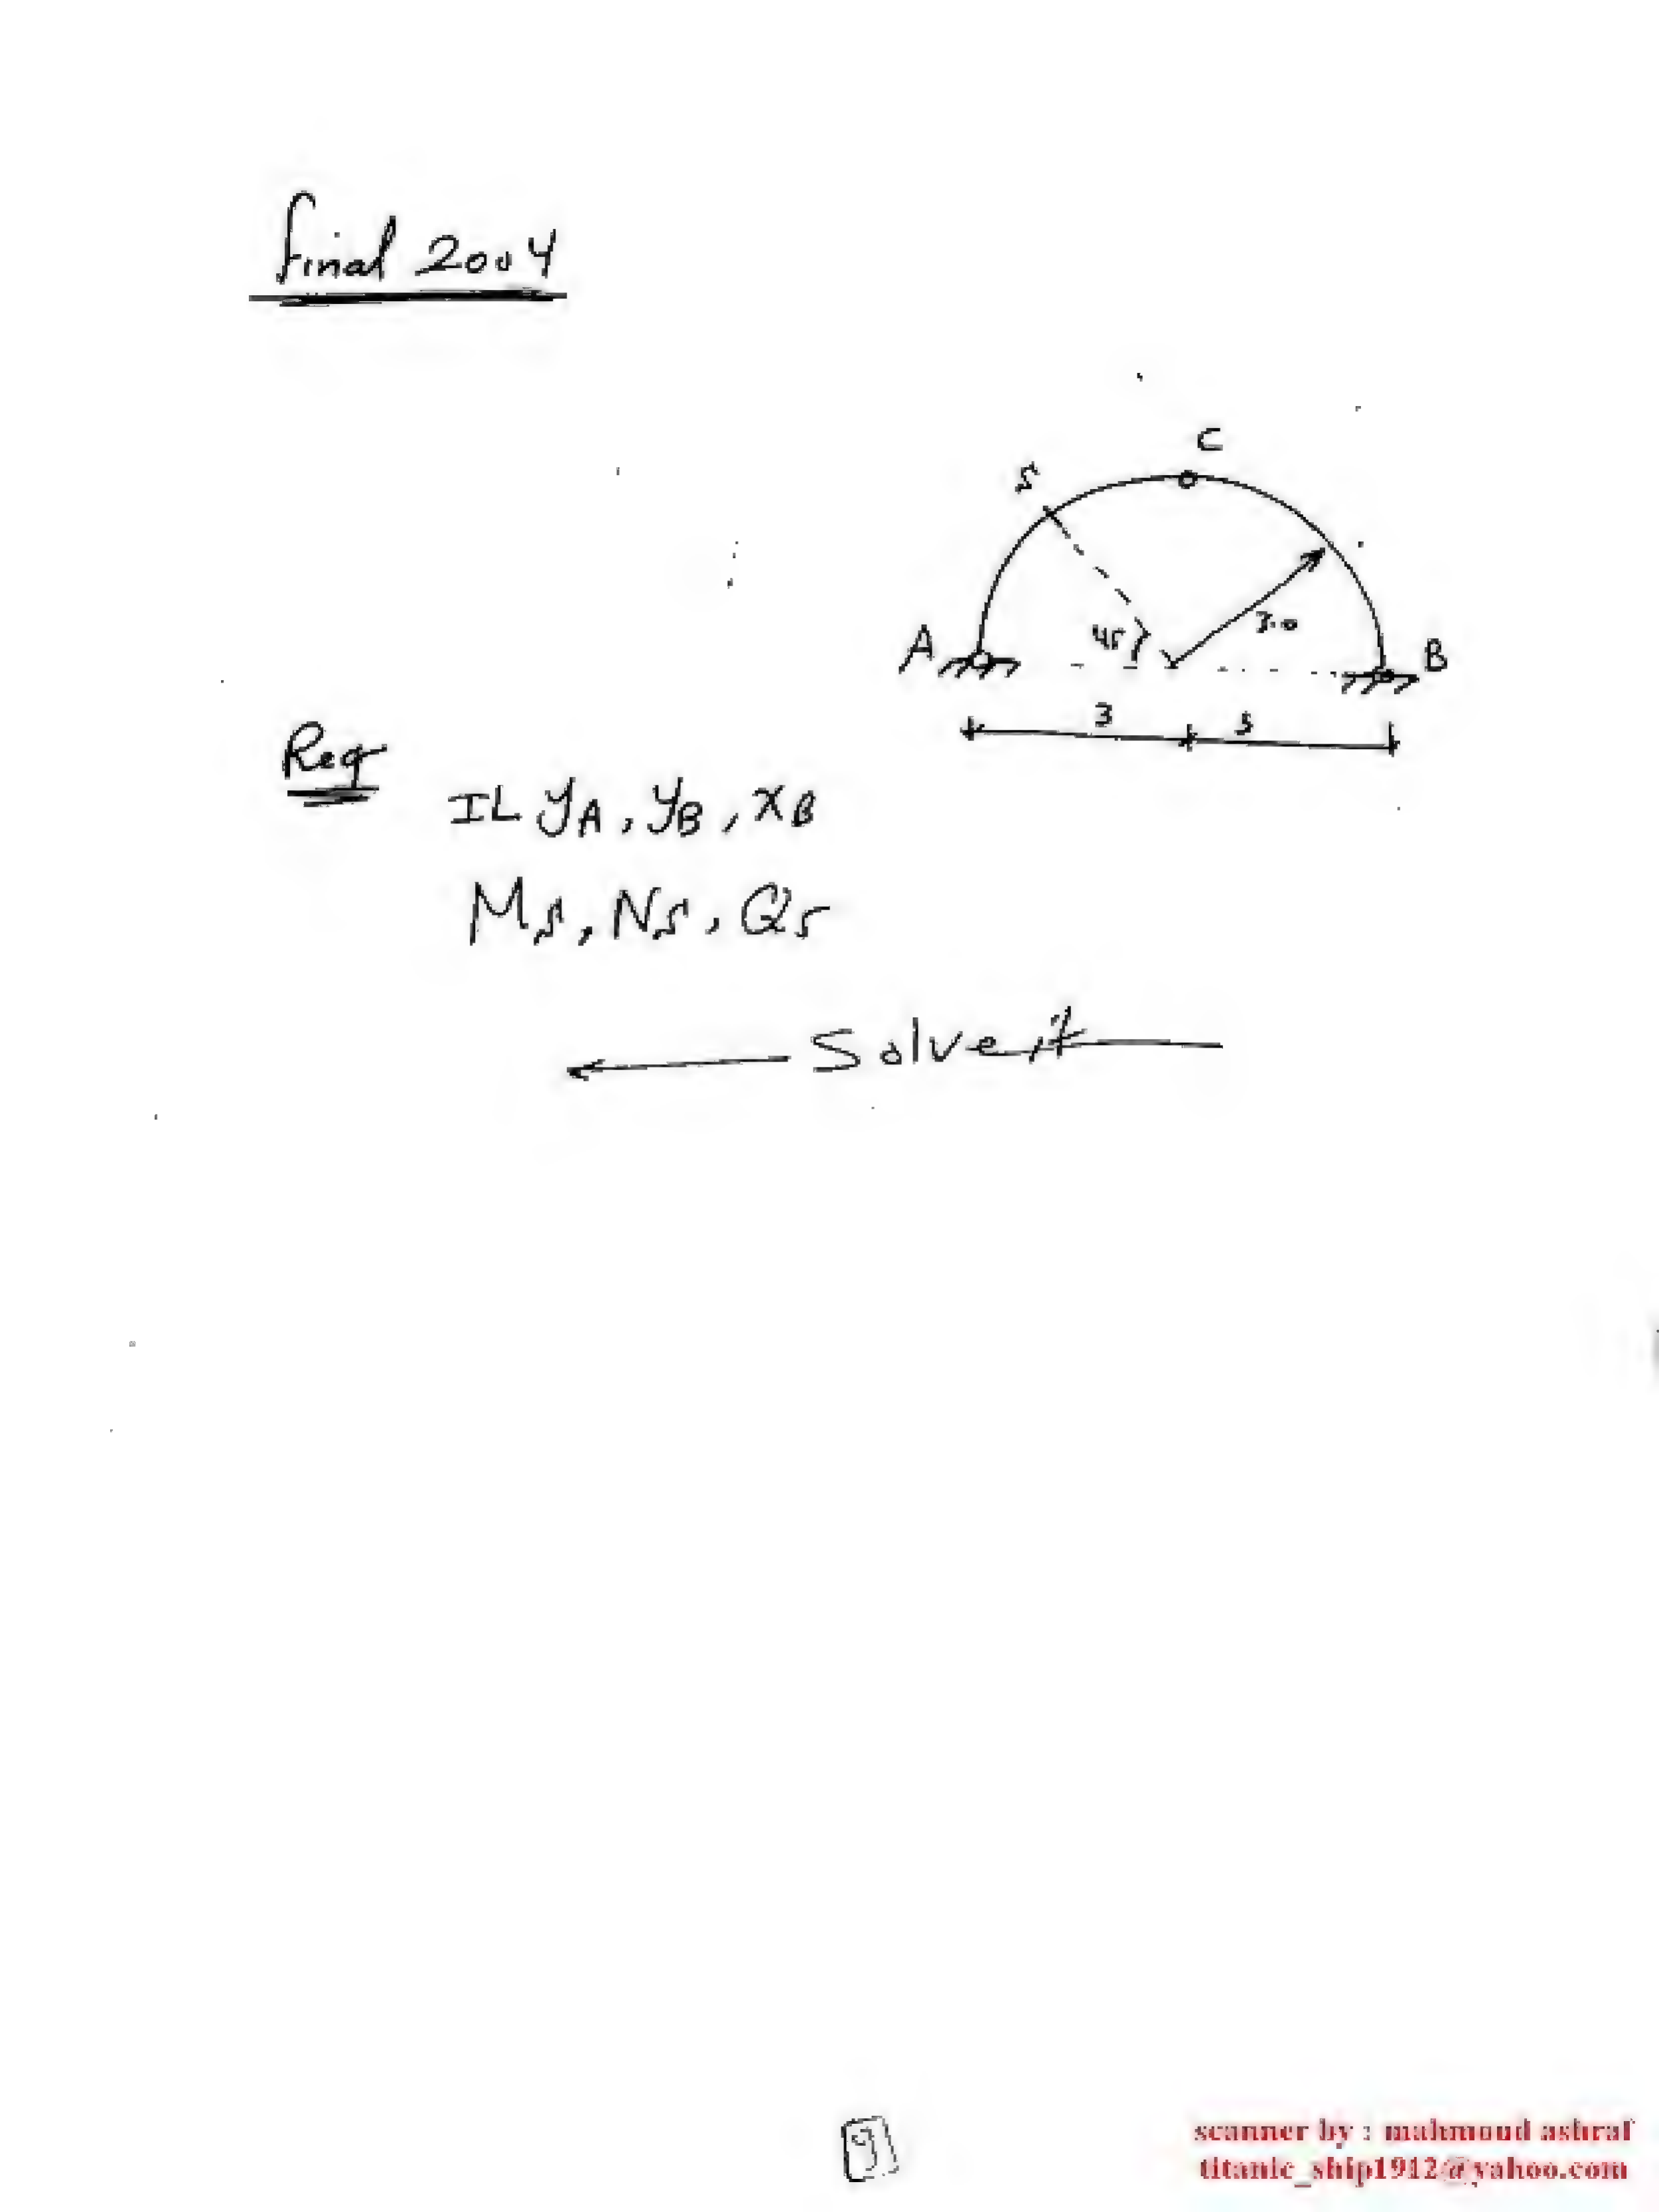 final 2004
C
S
3.0
45
A
B
3
3
Req
IL yA, yB, xB
Ms, Ns, Qs
Solve it
9
scanner by : mahmoud ashraf
titanic_ship1912@yahoo.com